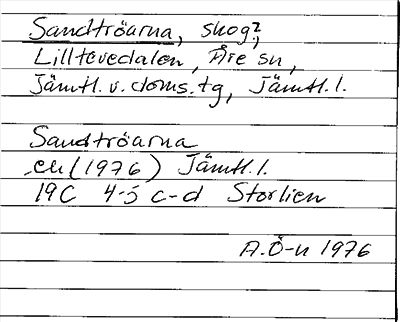 Sandtröarna, skog?,
Lilltevedalen, Åre sn,
Jämtl. v. doms. tg, Jämtl. l.
Sandtröarna
ek (1976) Jämtl. l.
19C 4-5 c-d Storlien
A.Ö-n 1976